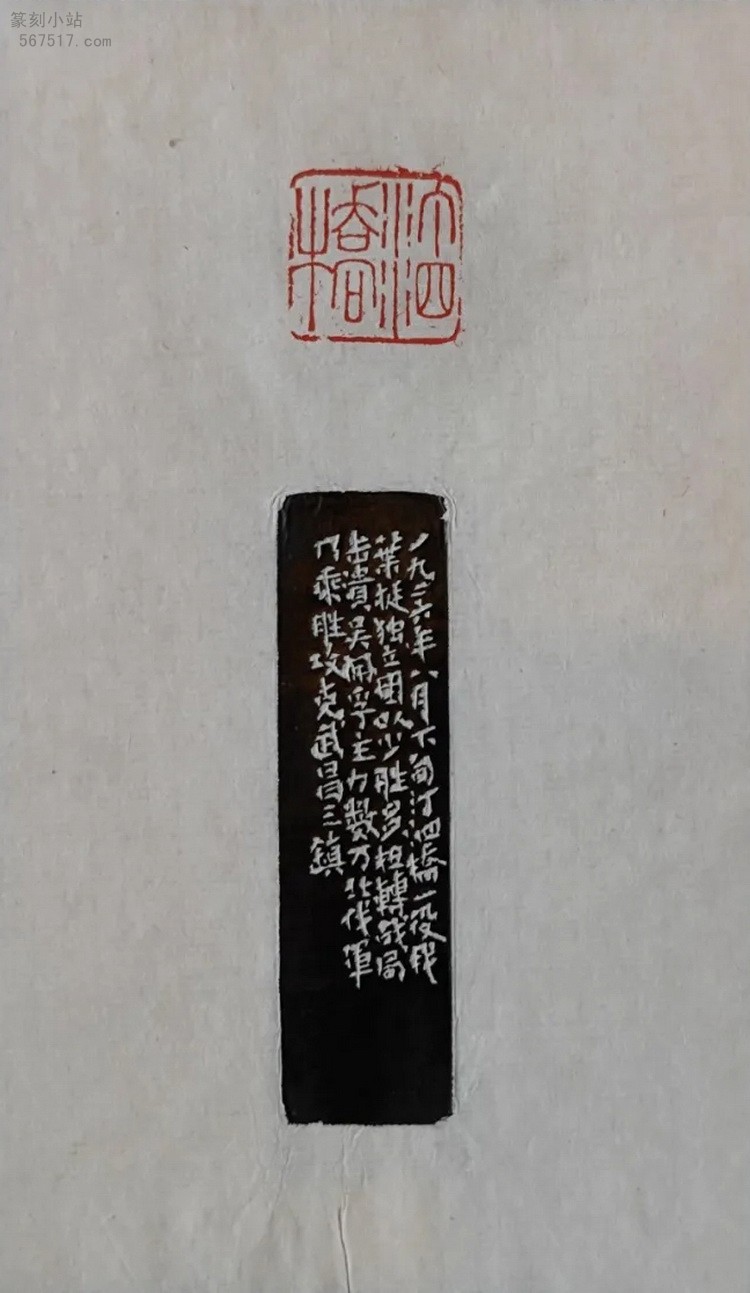 篆刻小站
567517.com
汀泗橋
一九二六年八月下旬汀泗橋一役我
葉挺独立團以少胜多扭轉战局
击潰吴佩孚主力數万北伐軍
乃乘胜攻克武昌三鎮